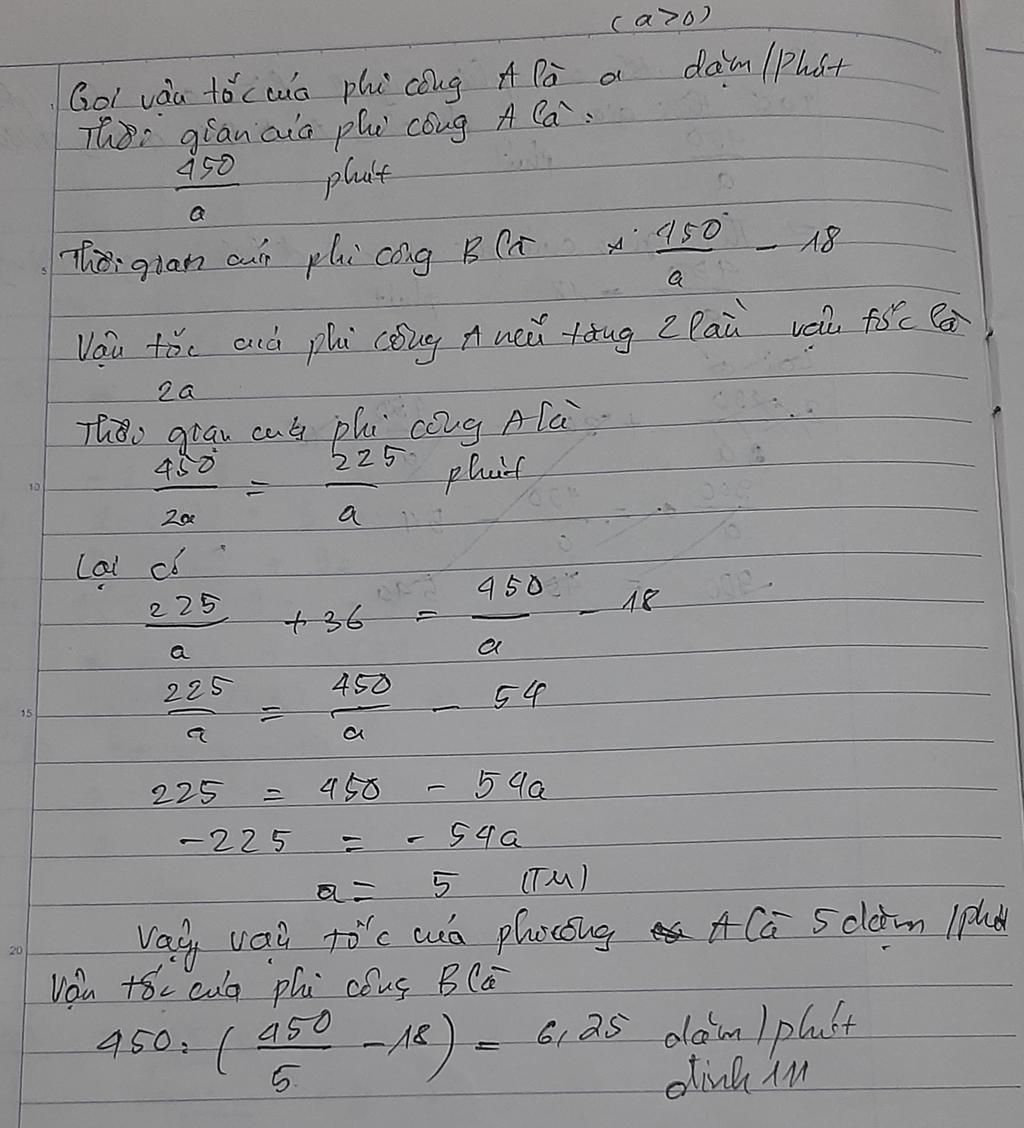 (a>0)
Gọi vận tốc của phi công A là a dặm/phút
Thời gian của phi công A là:
450/a phút
Thời gian của phi công B là 450/a - 18
Vận tốc của phi công A nếu tăng 2 lần vận tốc là
2a
Thời gian của phi công A là
450/2a = 225/a phút
Lại có
225/a + 36 = 450/a - 18
225/a = 450/a - 54
225 = 450 - 54a
-225 = -54a
a = 5 (TM)
Vậy vận tốc của phi công A là 5 dặm/phút
Vận tốc của phi công B là
450 : (450/5 - 18) = 6,25 dặm/phút
5
10
15
20